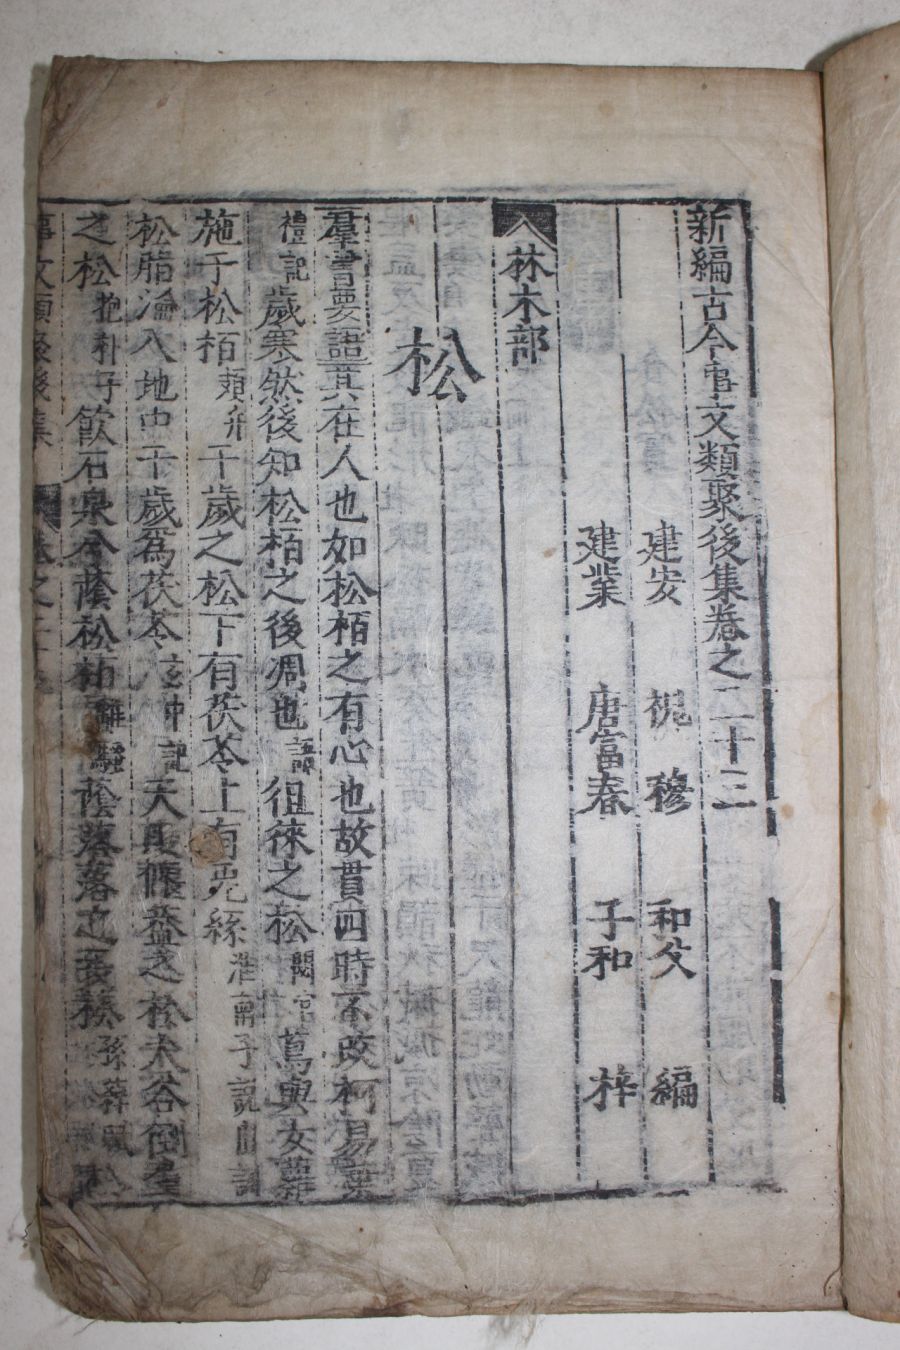 新編古今事文類聚後集卷之二十三
建安 祝 穆 和父 編
建業 唐富春 子和 梓
林木部
松
羣書要語其在人也如松栢之有心也故貫四時不改柯易葉
禮記歲寒然後知松栢之後凋也語徂徠之松閟宮蔦與女蘿
施于松栢頍弁千歲之松下有茯苓上有兎絲淮南子說山訓
松脂淪入地中千歲為茯苓玄中記天陵偃蓋之松大谷倒生
之松抱朴子飲石泉兮蔭松栢離騷蔭落落之長松孫綽賦
事文類聚後集 卷之二十三